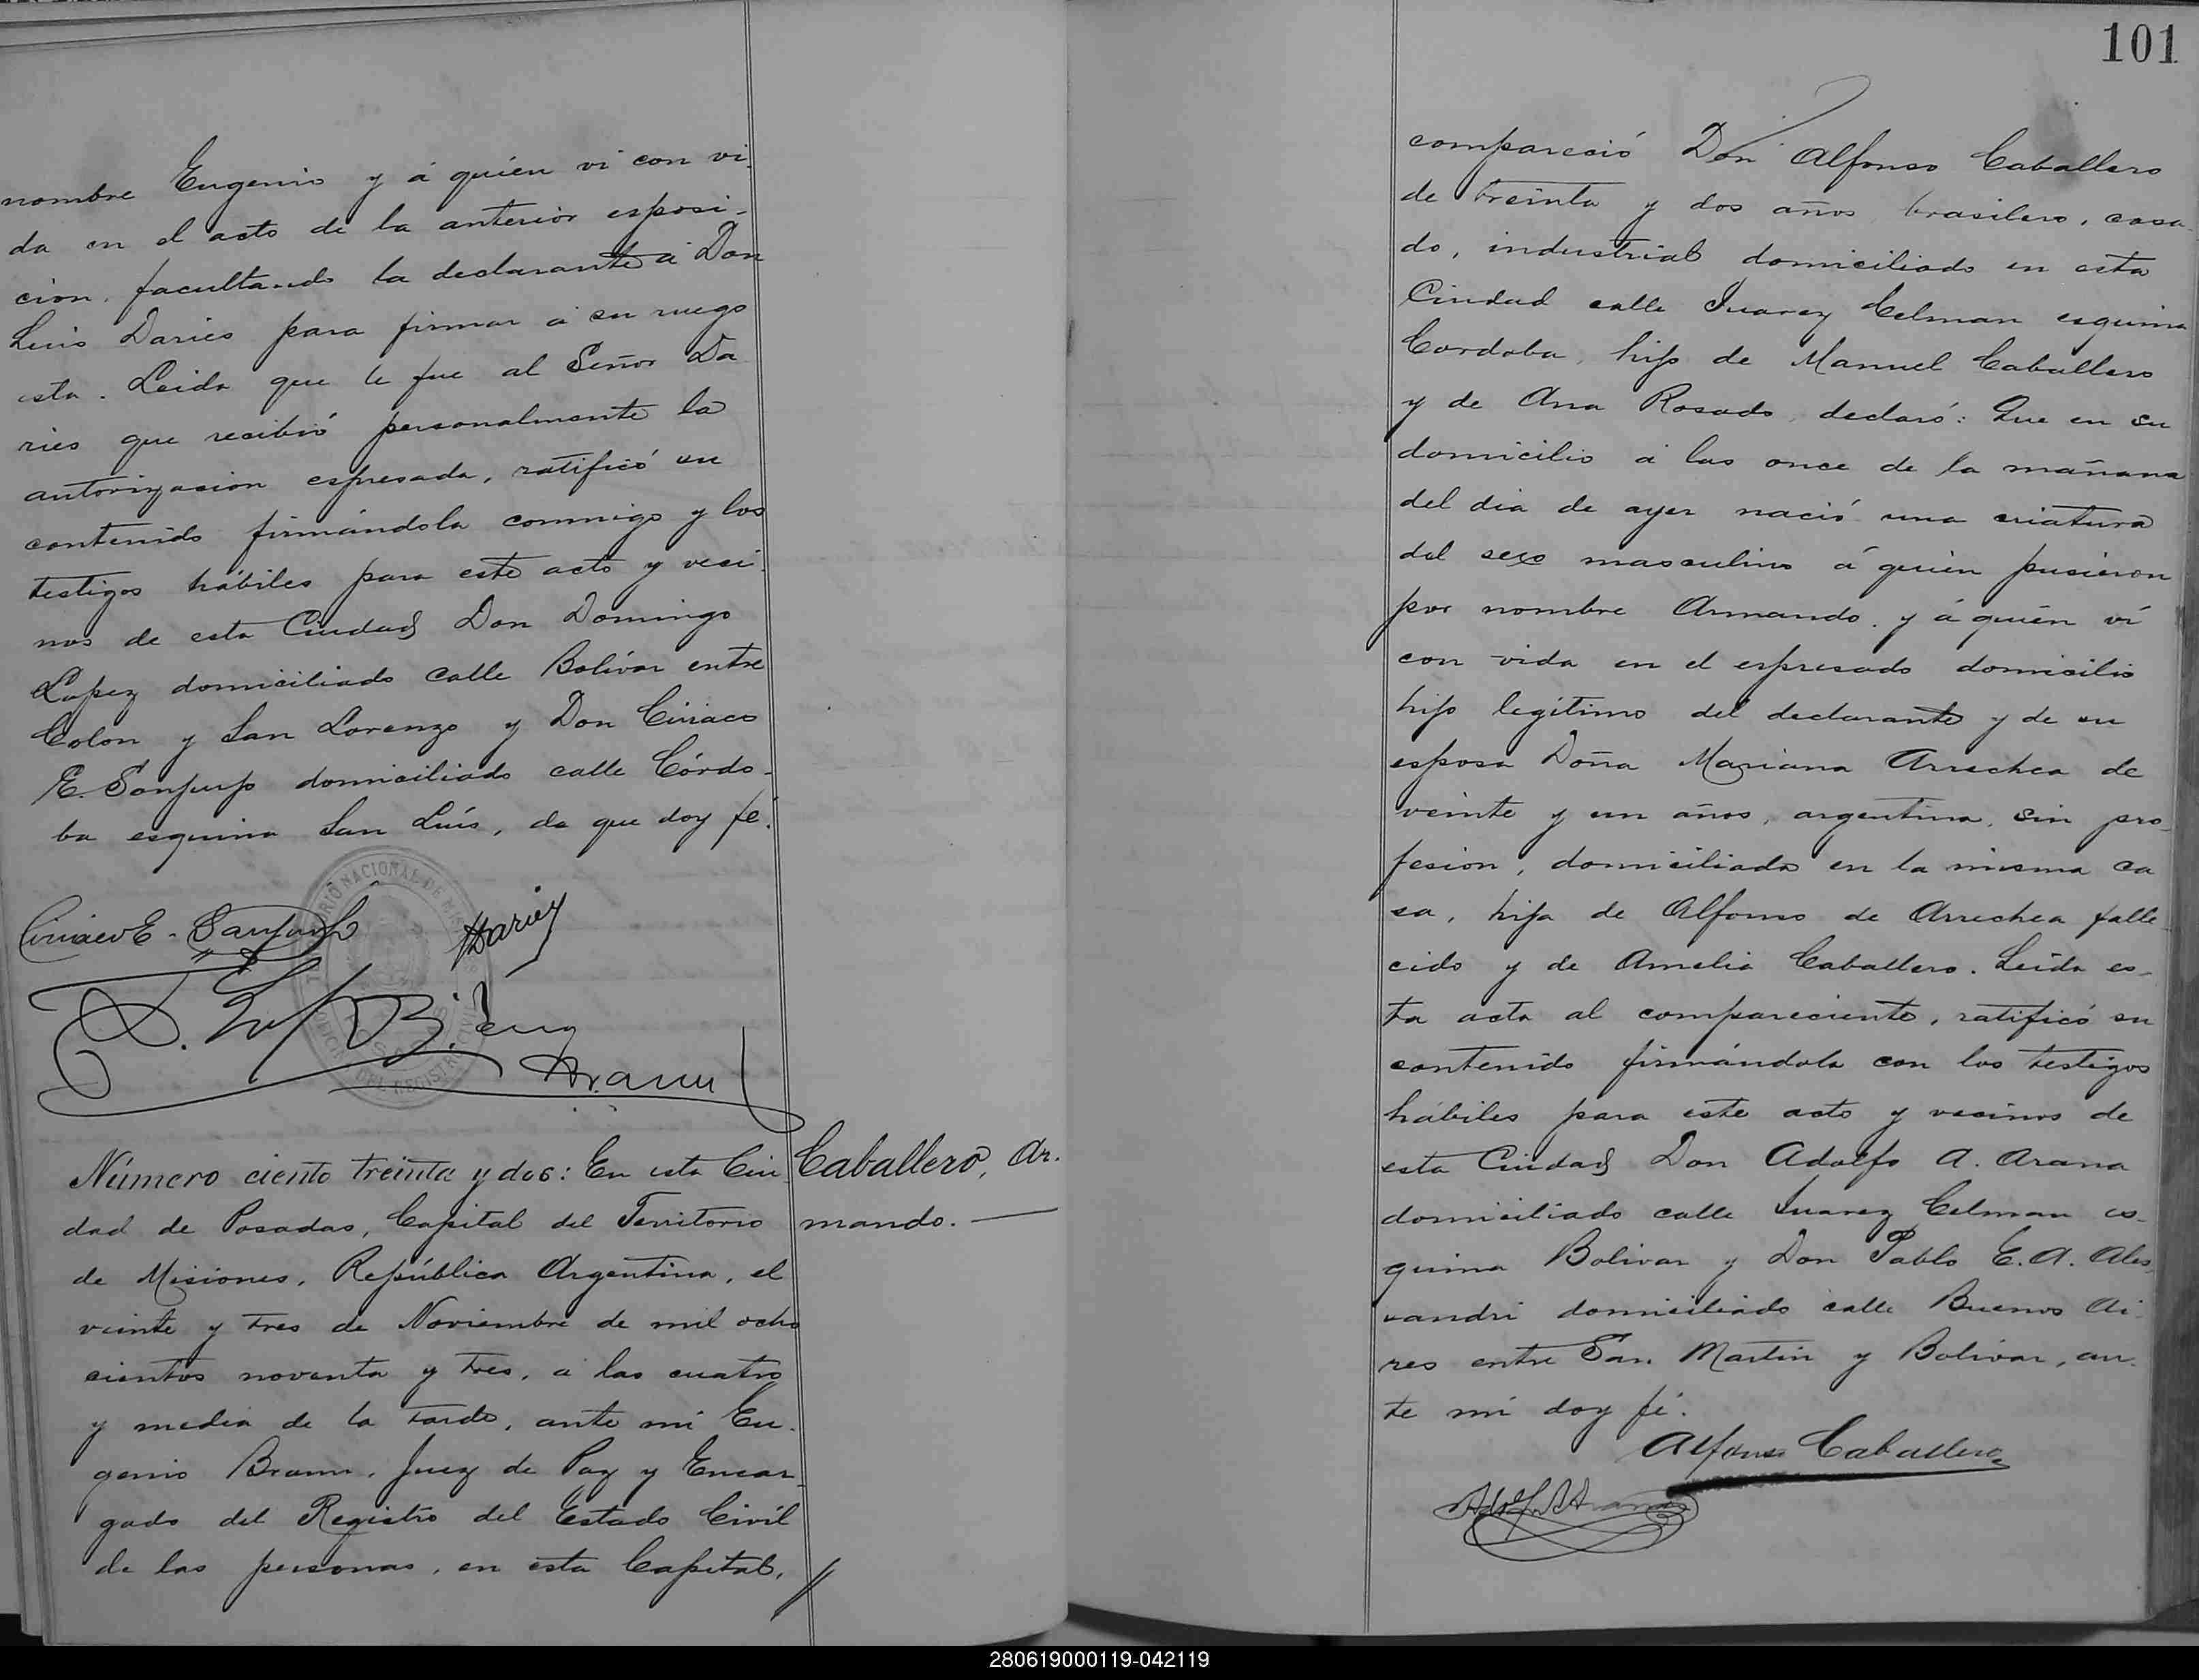 nombre Eugenio y á quién ví con vi-
da en el acto de la anterior esposi-
cion, facultando la declarante á Don
Luis Daries para firmar á su ruego
esta. Leida que le fue al Señor Da
ries que recibió personalmente la
autorizacion espresada, ratificó su
contenido firmándola conmigo y los
testigos hábiles para este acto y veci-
nos de esta Ciudad Don Domingo
Lopez domiciliado calle Bolívar entre
Colon y San Lorenzo y Don Ciriaco
E. Sanjurjo domiciliado calle Córdo-
ba esquina San Luís, de que doy fé.
Ciriaco E. Sanjurjo
LDaries
TERRITORIO NACIONAL DE MISIONES
DEL REGISTRO CIVIL
D. Lopez
Eug Braun
Número ciento treinta y dos: En esta Ciu
dad de Posadas, Capital del Territorio
de Misiones, República Argentina, el
veinte y tres de Noviembre de mil ocho
cientos noventa y tres, á las cuatro
y media de la tarde, ante mí Eu-
genio Braun, Juez de Paz y Encar-
gado del Registro del Estado Civíl
de las personas, en esta Capital, //
Caballero, Ar-
mando. —
101
compareció Don Alfonso Caballero
de treinta y dos años, brasilero, casa-
do, industrial domiciliado en esta
Ciudad calle Juarez Celman esquina
Cordoba, hijo de Manuel Caballero
y de Ana Rosado, declaró: Que en su
domicilio á las once de la mañana
del dia de ayer nació una criatura
del sexo masculino á quién pusieron
por nombre Armando, y á quién ví
con vida en el espresado domicilio
hijo legítimo del declarante y de su
esposa Doña Mariana Arrechea de
veinte y un años, argentina, sin pro-
fesion, domiciliada en la misma ca
sa, hija de Alfonso de Arrechea falle
cido y de Amelia Caballero. Leída es-
ta acta al compareciente, ratificó su
contenido firmándola con los testigos
hábiles para este acto y vecinos de
esta Ciudad Don Adolfo A. Arana
domiciliado calle Juarez Celman es-
quina Bolivar y Don Pablo E. A. Ales-
vandri domiciliado calle Buenos Ai-
res entre San Martin y Bolivar, an-
te mí doy fé.
Alfonso Caballero
Adolf A Arana
280619000119-042119